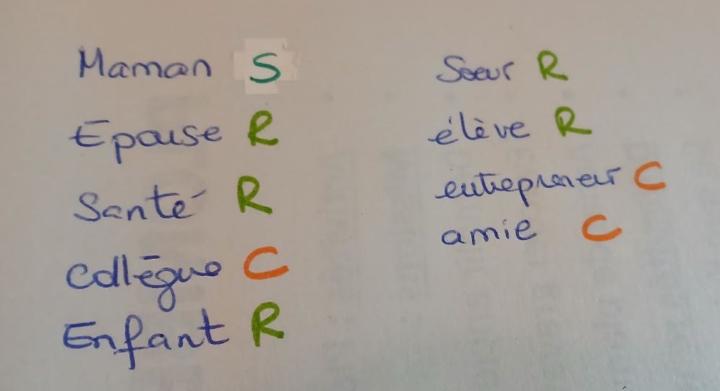 Maman S
Epouse R
Santé R
Collègue C
Enfant R
Soeur R
élève R
entrepreneur C
amie C